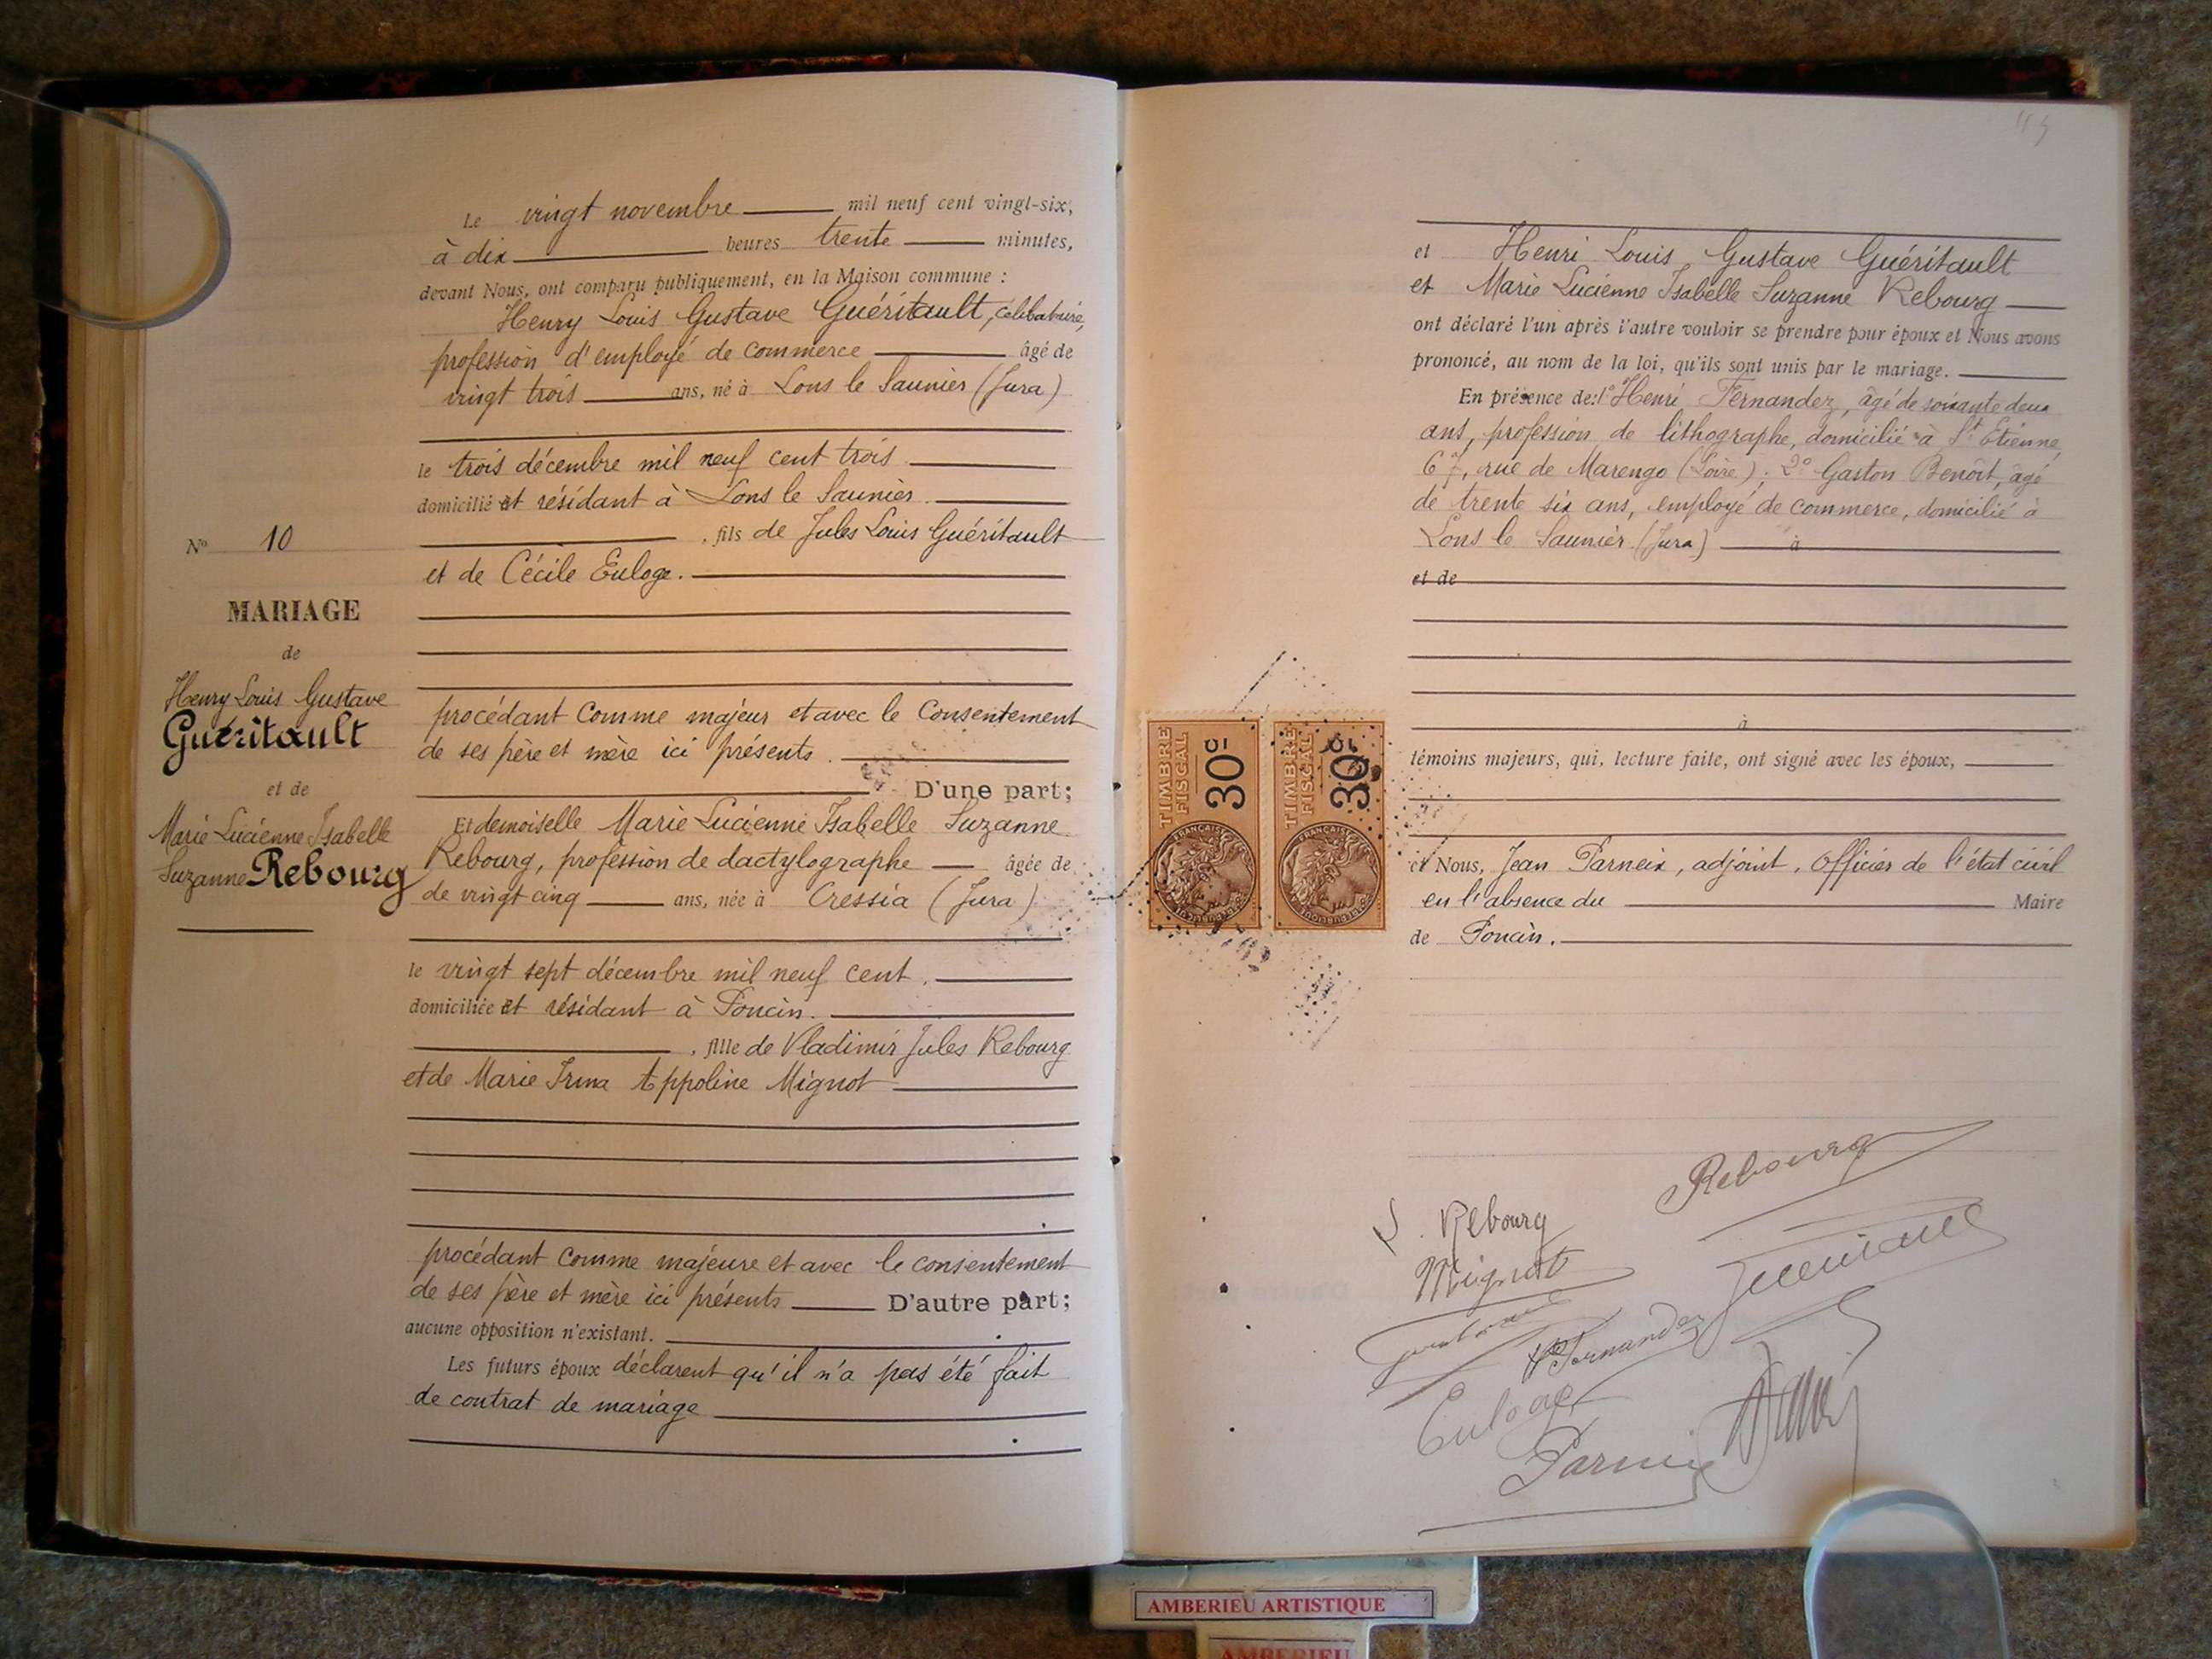 Le vingt novembre mil neuf cent vingt-six,
à dix heures trente minutes,
devant Nous, ont comparu publiquement, en la Maison commune :
Henry Louis Gustave Guéritault, célibataire,
profession d'employé de commerce âgé de
vingt trois ans, né à Lons le Saunier (Jura)
le trois décembre mil neuf cent trois
domicilié et résidant à Lons le Saunier.
, fils de Jules Louis Guéritault
et de Cécile Euloge.
procédant comme majeur et avec le consentement
de ses père et mère ici présents.
D'une part;
Et demoiselle Marie Lucienne Isabelle Suzanne
Rebourg, profession de dactylographe âgée de
de vingt cinq ans, née à Cressia (Jura)
le vingt sept décembre mil neuf cent.
domiciliée et résidant à Poncin.
, fille de Vladimir Jules Rebourg
et de Marie Irma Appoline Mignot
procédant comme majeure et avec le consentement
de ses père et mère ici présents D'autre part;
aucune opposition n'existant.
Les futurs époux déclarent qu'il n'a pas été fait
de contrat de mariage
No 10
MARIAGE
de
Henry Louis Gustave
Guéritault
et de
Marie Lucienne Isabelle
Suzanne Rebourg
et Henri Louis Gustave Guéritault
et Marie Lucienne Isabelle Suzanne Rebourg
ont déclaré l'un après l'autre vouloir se prendre pour époux et Nous avons
prononcé, au nom de la loi, qu'ils sont unis par le mariage.
En présence de: 1° Henri Fernandez, âgé de soixante deux
ans, profession de lithographe, domicilié à St Etienne,
67, rue de Marengo (Loire); 2° Gaston Benoît, âgé
de trente six ans, employé de commerce, domicilié à
Lons le Saunier (Jura) à
et de
à
témoins majeurs, qui, lecture faite, ont signé avec les époux,
et Nous, Jean Parneix, adjoint, Officier de l'état civil
en l'absence du Maire
de Poncin.
TIMBRE
FISCAL
30c
TIMBRE
FISCAL
30c
Rebourg
S. Rebourg
Mignot
Fernandez
Euloge
AMBERIEU ARTISTIQUE
AMBERIEU